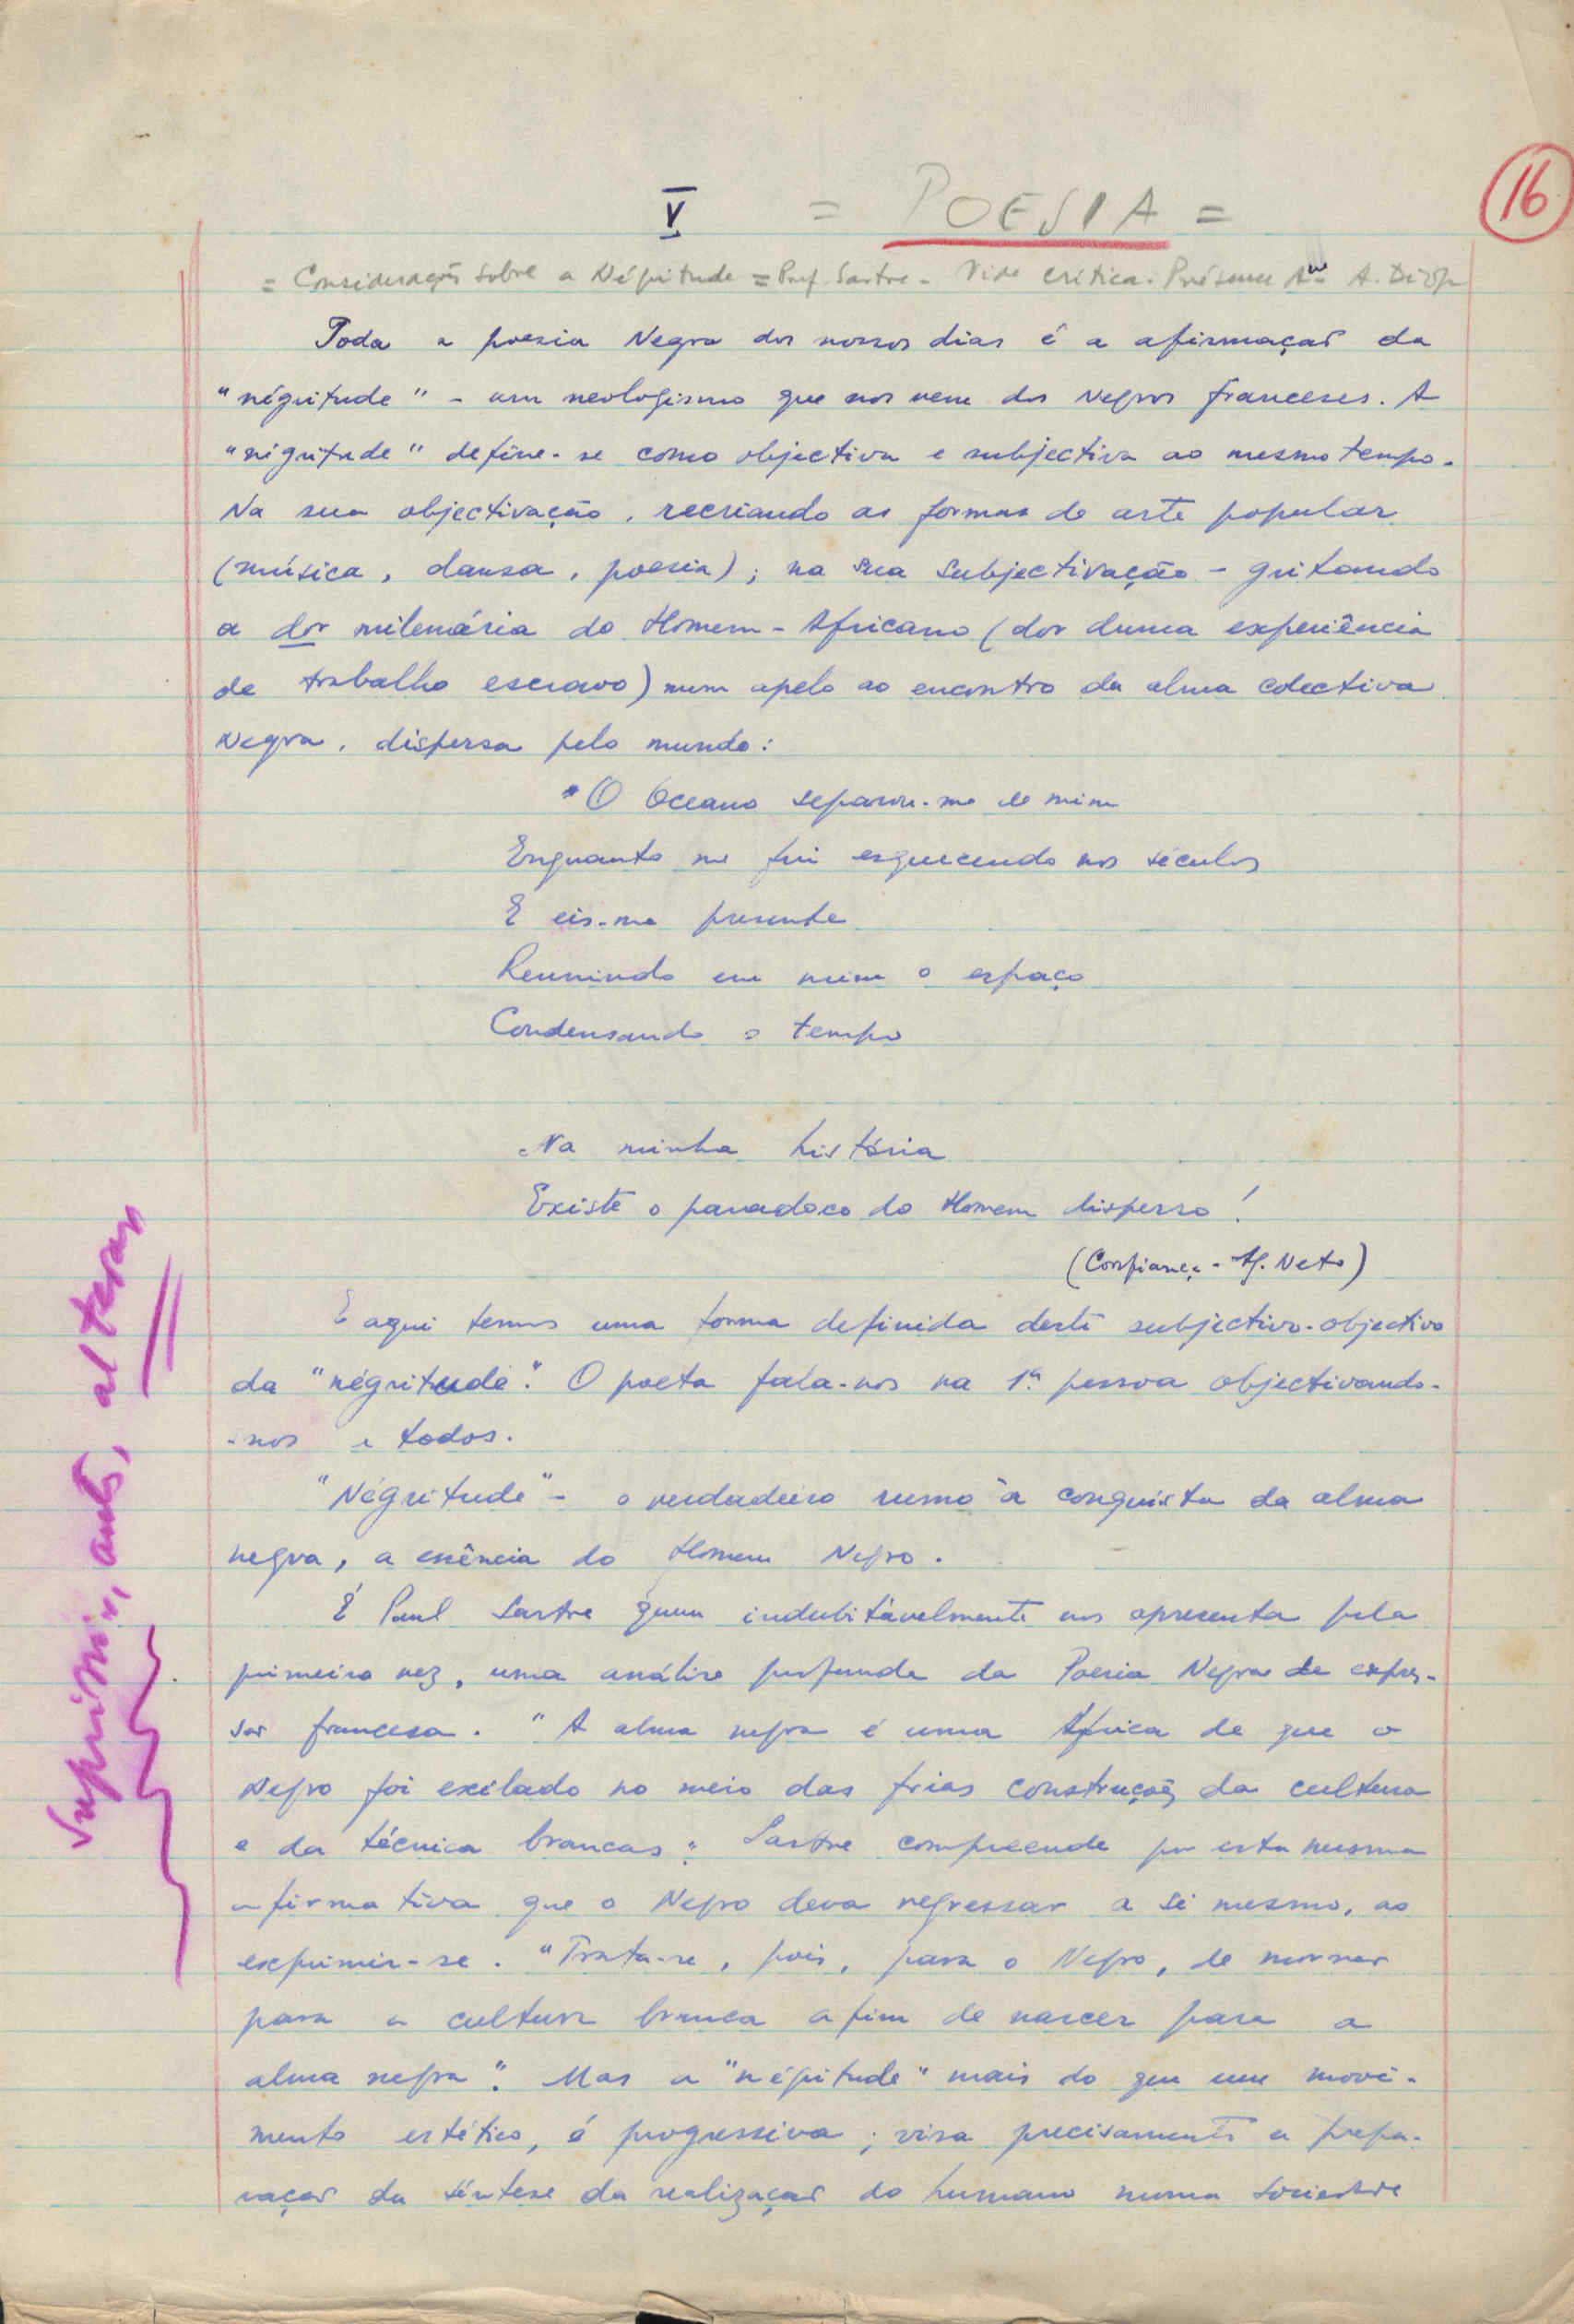 16
V = POESIA =
= Considerações sobre a Négritude = Pref. Sartre - Vide crítica. Présence Afne A. Diop
Toda a poesia Negra dos nossos dias é a afirmação da
"négritude" - um neologismo que nos vem dos Negros franceses. A
"nigritude" define-se como objectiva e subjectiva ao mesmo tempo.
Na sua objectivação, recriando as formas de arte popular
(música, dansa, poesia); na sua subjectivação - gritando
a dor milenária do Homem-Africano (dor duma experiência
de trabalho escravo) num apelo ao encontro da alma colectiva
Negra, dispersa pelo mundo:
"O Oceano separou-me de mim
Enquanto me fui esquecendo nos séculos
E eis-me presente
Reunindo em mim o espaço
Condensando o tempo
Na minha história
Existe o paradoxo do Homem disperso!
(Confiança - A. Neto)
E aqui temos uma forma definida deste subjectivo-objectivo
da "négritude". O poeta fala-nos na 1ª pessoa objectivando-
-nos a todos.
"Négritude" - o verdadeiro rumo à conquista da alma
negra, a essência do Homem Negro.
É Paul Sartre quem indubitàvelmente nos apresenta pela
primeira vez, uma análise profunda da Poesia Negra de expres-
são francesa. "A alma negra é uma África de que o
Negro foi exilado no meio das frias construções da cultura
e da técnica brancas". Sartre compreende por esta mesma
afirmativa que o Negro deva regressar a si mesmo, ao
exprimir-se. "Trata-se, pois, para o Negro, de morrer
para a cultura branca a fim de nascer para a
alma negra". Mas a "négritude" mais do que um movi-
mento estético, é progressiva; visa precisamente a prepa-
ração da síntese da realização do humano numa sociedade
suprimir, ants, alterar